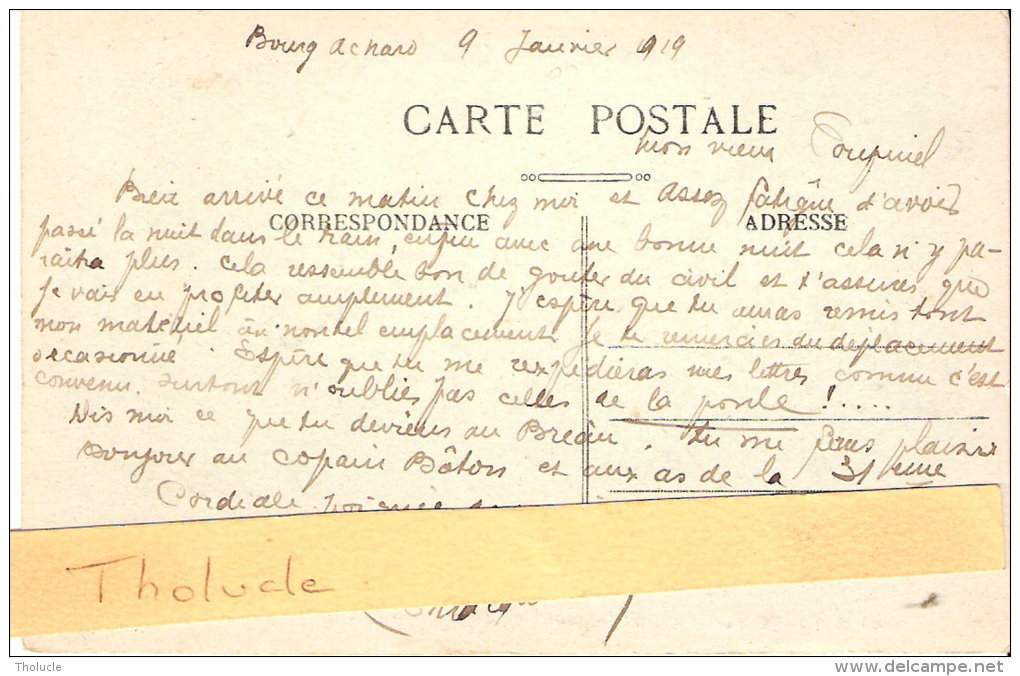 Bourg Achard 9 Janvier 1919
CARTE POSTALE
Mon vieux Poupinel
Bien arrivé ce matin chez moi et assez fatigué d'avoir
CORRESPONDANCE
ADRESSE
passé la nuit dans le train, enfin avec une bonne nuit cela n'y pa-
raitra plus. Cela ressemble bon de gouter du civil et t'assures que
je vais en profiter amplement. J'espère que tu auras remis tout
mon matériel à nouvel emplacement. Je te remercies du déplacement
occasionné. Espère que tu me rexpédieras mes lettres comme c'est
convenu surtout n'oublies pas celles de la ponle !....
Dis moi ce que tu deviens au Breau. Tu me feras plaisir
Bonjour au copain Bâton et aux as de la 31eme
Cordiale poignée
Tholucle
Tholucle
delcampe.net